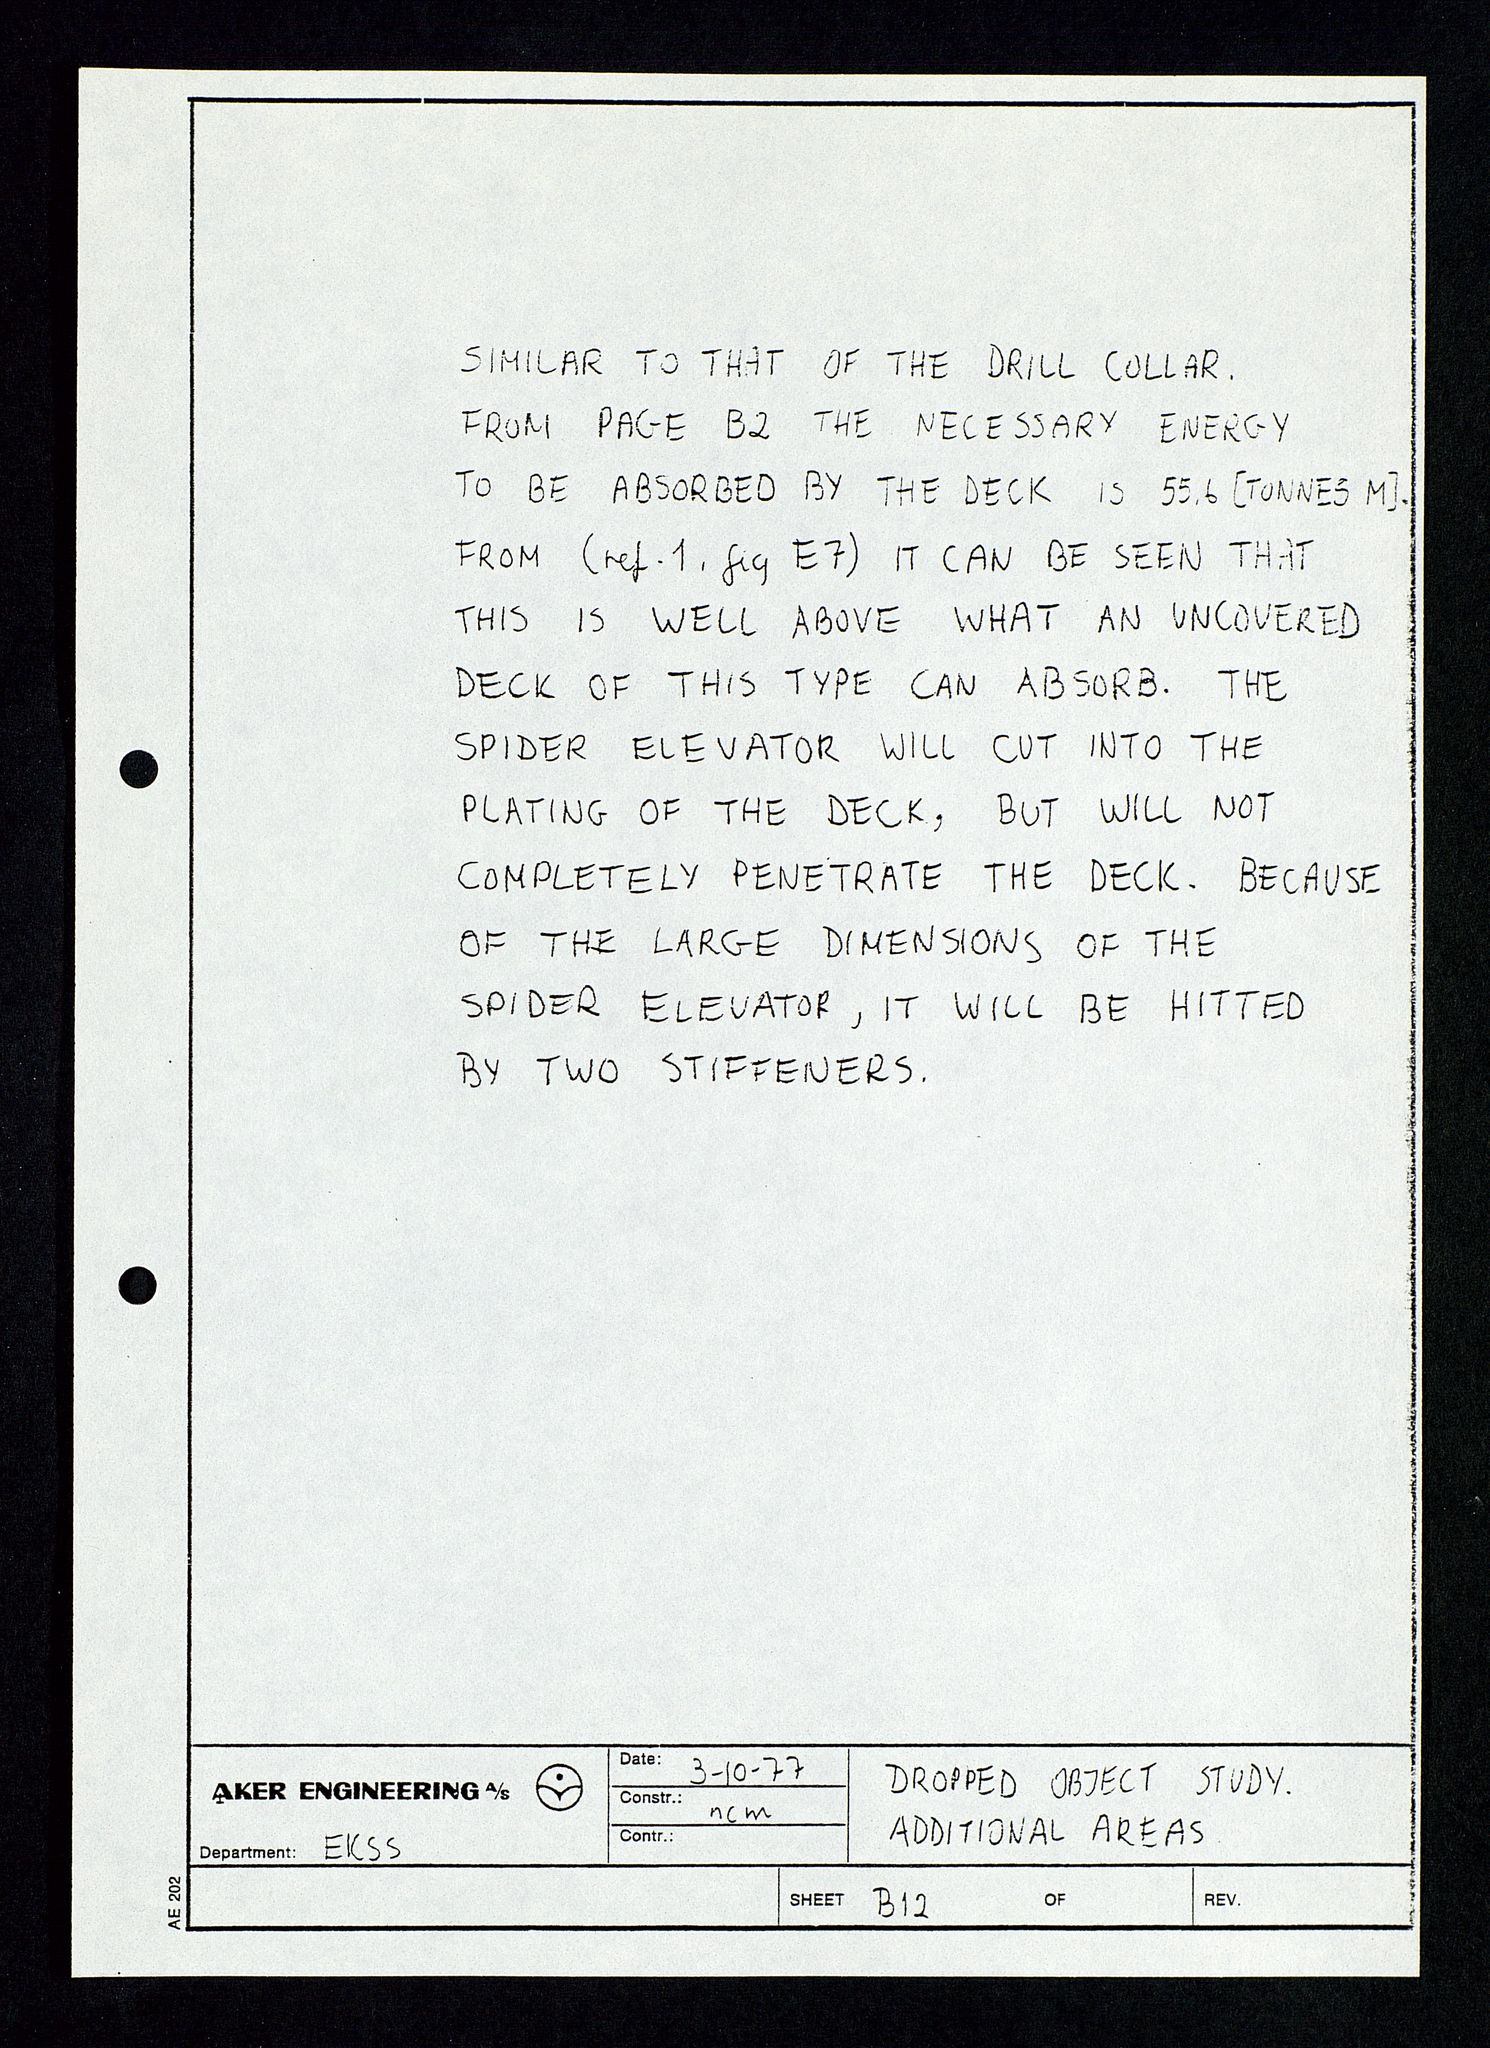 SIMILAR TO THAT OF THE DRILL COLLAR.
FROM PAGE B2 THE NECESSARY ENERGY
TO BE ABSORBED BY THE DECK IS 55.6 [TONNES M].
FROM (ref. 1, fig E7) IT CAN BE SEEN THAT
THIS IS WELL ABOVE WHAT AN UNCOVERED
DECK OF THIS TYPE CAN ABSORB. THE
SPIDER ELEVATOR WILL CUT INTO THE
PLATING OF THE DECK, BUT WILL NOT
COMPLETELY PENETRATE THE DECK. BECAUSE
OF THE LARGE DIMENSIONS OF THE
SPIDER ELEVATOR, IT WILL BE HITTED
BY TWO STIFFENERS.
AKER ENGINEERING A/S
Department: EKSS
Date: 3-10-77
Constr.: ncm
Contr.:
DROPPED OBJECT STUDY.
ADDITIONAL AREAS
SHEET B12 OF
REV.
AE 202